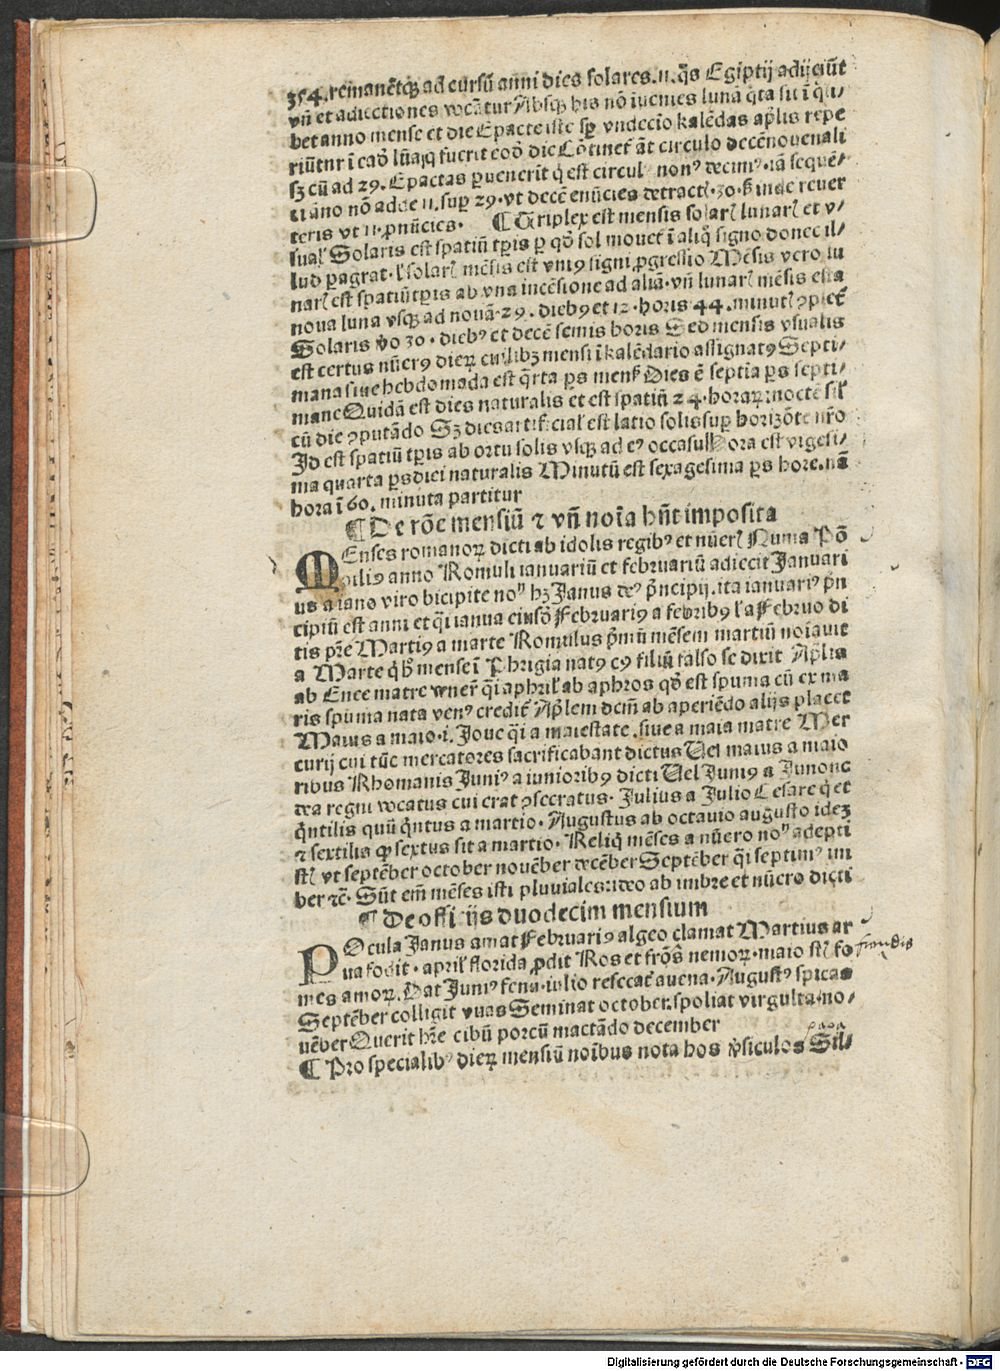 354. remanẽtqꝫ ad cursũ anni dies solares .11. q̃s Egiptij adijciũt
vñ et adiectiones vocãtur Absqꝫ his nõ inuenies lunã q̃ta sit ĩ q̃li/
bet anno mense et die Epacte iste sꝑ vndecĩo kalẽdas apͥlis repe
riũtur ĩ eadẽ lũa q̃ fuerit eodẽ die Cõtinet̃ ãt circulo decẽnouenali
sꝫ cũ ad 29. Epactas ꝑuenerit q̃ est circul nonꝰ decimꝰ. iã sequẽ/
ti ãno nõ adde 11. suꝑ 29. vt decẽ enũcies detractꝭ .30. sꝫ inde reuer
teris vt 11. ꝓnũcies. ¶ Triplex est mensis solarꝭ lunarꝭ et v/
sualꝭ Solaris est spatiũ tꝑis ꝑ qd̃ sol mouet̃ ĩ aliq̃ signo donec il/
lud ꝑagrat. ł solarꝭ mẽsis est vniꝰ signi ꝓgressio Mẽsis vero lu
narꝭ est spatiũ tꝑis ab vna incẽsione ad aliã. vñ lunarꝭ mẽsis est a
noua luna vsqꝫ ad nouã. 29. diebꝰ et 12. horis 44. minutꝭ ꝯplet̃
Solaris ṽo 30. diebꝰ et decẽ semis horis Sed mensis vsualis
est certus nũerꝰ dieꝝ cuilibꝫ mensi ĩ kalẽdario assignatꝰ Septi/
mana siue hebdomada est q̃rta ꝑs mensꝭ Dies ẽ septĩa ꝑs septi/
mane Quidã est dies naturalis et est spatiũ 24. horaꝝ: noctẽ siłꝭ
cũ die ꝯputãdo Sꝫ dies artificialꝭ est latio solis suꝑ horizõte nr̃o
Id est spatiũ tꝑis ab ortu solis vsqꝫ ad eꝰ occasũ Hora est vigesi/
ma quarta ꝑs diei naturalis Minutũ est sexagesima ꝑs hore. nã
hora ĩ 60. minuta partitur
¶ De rõe mensiũ ⁊ vñ noĩa hñt imposita
MEnses romanoꝝ dicti ab idolis regibꝰ et nũerꝭ Numa Põ
piliꝰ anno Romuli ianuariũ et februariũ adiecit Januari
us a iano viro bicipite noẽ hꝫ Janus deꝰ p̃ncipij. ita ianuariꝰ p̃n
cipiũ est anni et q̃i ianua eiusdẽ Februariꝰ a febribꝰ ł a Februo di
tis pr̃e Martiꝰ a marte Romulus p̃mũ mẽsem martiũ noĩauit
a Marte q̃ hõ mense ĩ Phrigia natꝰ cꝰ filiũ falso se dixit Apͥlis
ab Enee matre venere q̃i aphrilꝭ ab aphros qd̃ est spuma cũ ex ma
ris spuma nata venꝰ credit̃ Apͥlem dcm̃ ab aperiẽdo alijs placet
Maius a maio .i. Joue q̃i a maiestate. siue a maia matre Mer
curij cui tũc mercatores sacrificabant dictus Vel maius a maio
ribus Rhomanis Juniꝰ a iunioribꝰ dicti Vel Juniꝰ a Junone
dea regni vocatus cui erat ꝯsecratus. Julius a Julio Cesare q̃ et
q̃ntilis quũ q̃ntus a martio. Augustus ab octauio augusto idẽꝫ
⁊ sextilis ꝙ sextus sit a martio. Reliq̃ mẽses a nũero noẽ adepti
st̃ vt septẽber october nouẽber decẽber Septẽber q̃i septimꝰ im
ber ⁊c̃. Sũt em̃ mẽses isti pluuiales: ideo ab imbre et nũero dicti
¶ De officijs duodecim mensium
POcula Janus amat Februariꝰ algeo clamat Martius ar
ua fodit. aprilꝭ florida ꝓdit Ros et frõs nemoꝝ. maio st̃ fo
frondis
mes amoꝝ. Dat Juniꝰ fena. iulio resecat̃ auena. Augustꝰ spicas
Septẽber colligit vuas Seminat october. spoliat virgulta no/
uẽber Querit hr̃e cibũ porcũ mactãdo december
papa
¶ Pro specialibꝰ dieꝝ mensiũ noĩbus nota hos v̓siculos Sil/
Digitalisierung gefördert durch die Deutsche Forschungsgemeinschaft - DFG